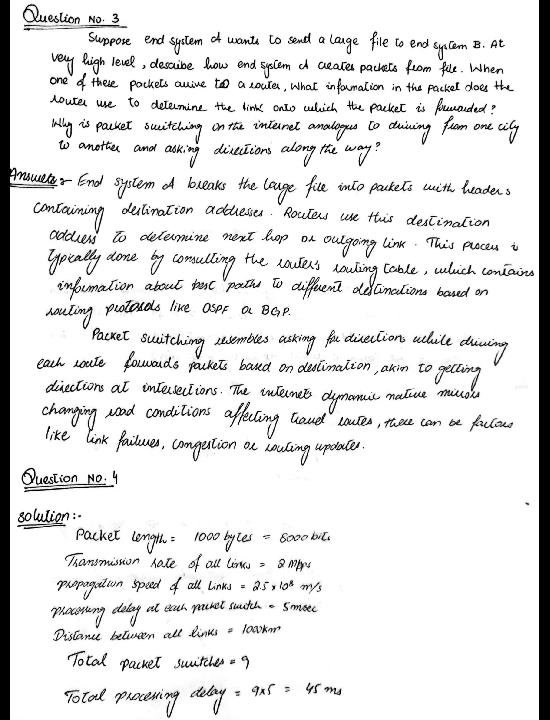 Question No. 3
Suppose end system A wants to send a large file to end system B. At
very high level, describe how end system A creates packets from file. When
one of these packets arrive to a router, what information in the packet does the
router use to determine the link onto which the packet is forwarded?
Why is packet switching on the internet analogus to driving from one city
to another and asking directions along the way?
Answer:- End system A breaks the large file into packets with headers
containing destination addresses. Routers use this destination
address to determine next hop or outgoing link. This process is
typically done by consulting the router's routing table, which contains
information about best paths to different destinations based on
routing protocols like OSPF or BGP.
Packet switching resembles asking for directions while driving
each route forwards packets based on destination, akin to getting
directions at intersections. The internet's dynamic native mirrors
changing road conditions affecting travel routes, there can be factors
like link failures, congestion or routing updates.
Question No. 4
Solution:-
Packet length = 1000 bytes = 8000 bits
Transmission rate of all links = 2 Mbps
propagation speed of all links = 2.5 x 10⁸ m/s
processing delay at each packet switch = 5msec
Distance between all links = 1000km
Total packet switches = 9
Total processing delay = 9x5 = 45 ms